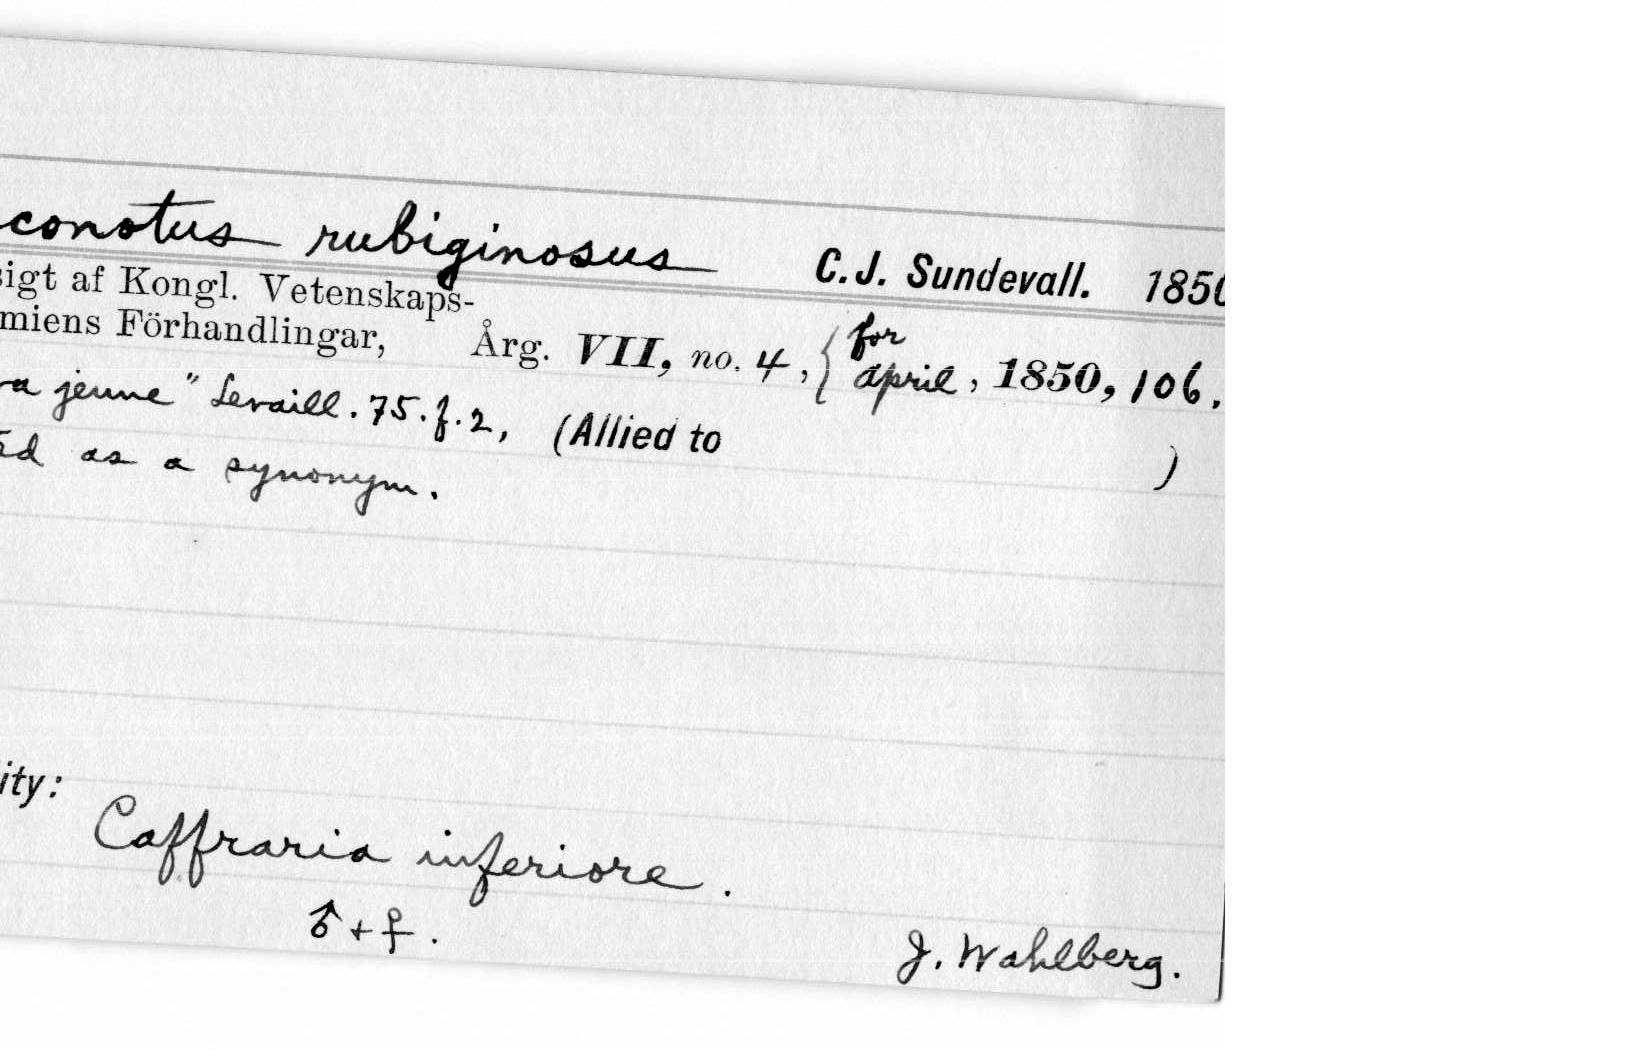 conotus rubiginosus C. J. Sundevall. 1850
sigt af Kongl. Vetenskaps-
miens Förhandlingar, Årg. VII, no. 4, { for april, 1850, 106.
ra jeune" Levaill. 75. f. 2, (Allied to )
ed as a synonym.
ity:
Caffraria inferiore.
♂ + ♀.
J. Wahlberg.